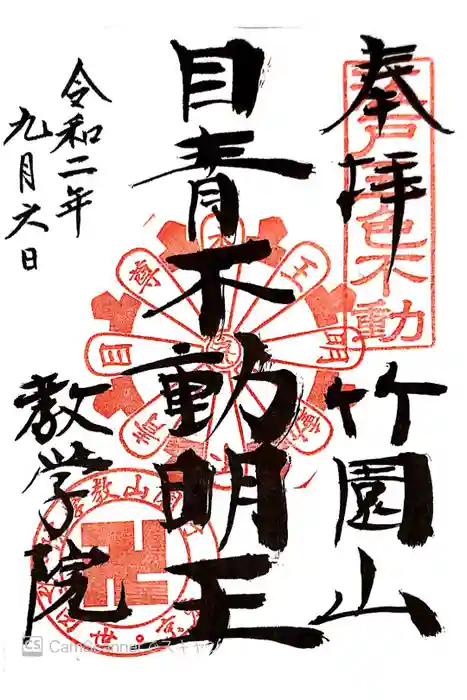 奉拝
江戸五色不動
竹園山
目青不動明王
令和二年
九月六日
教学院
CS CamScanner でスキャン